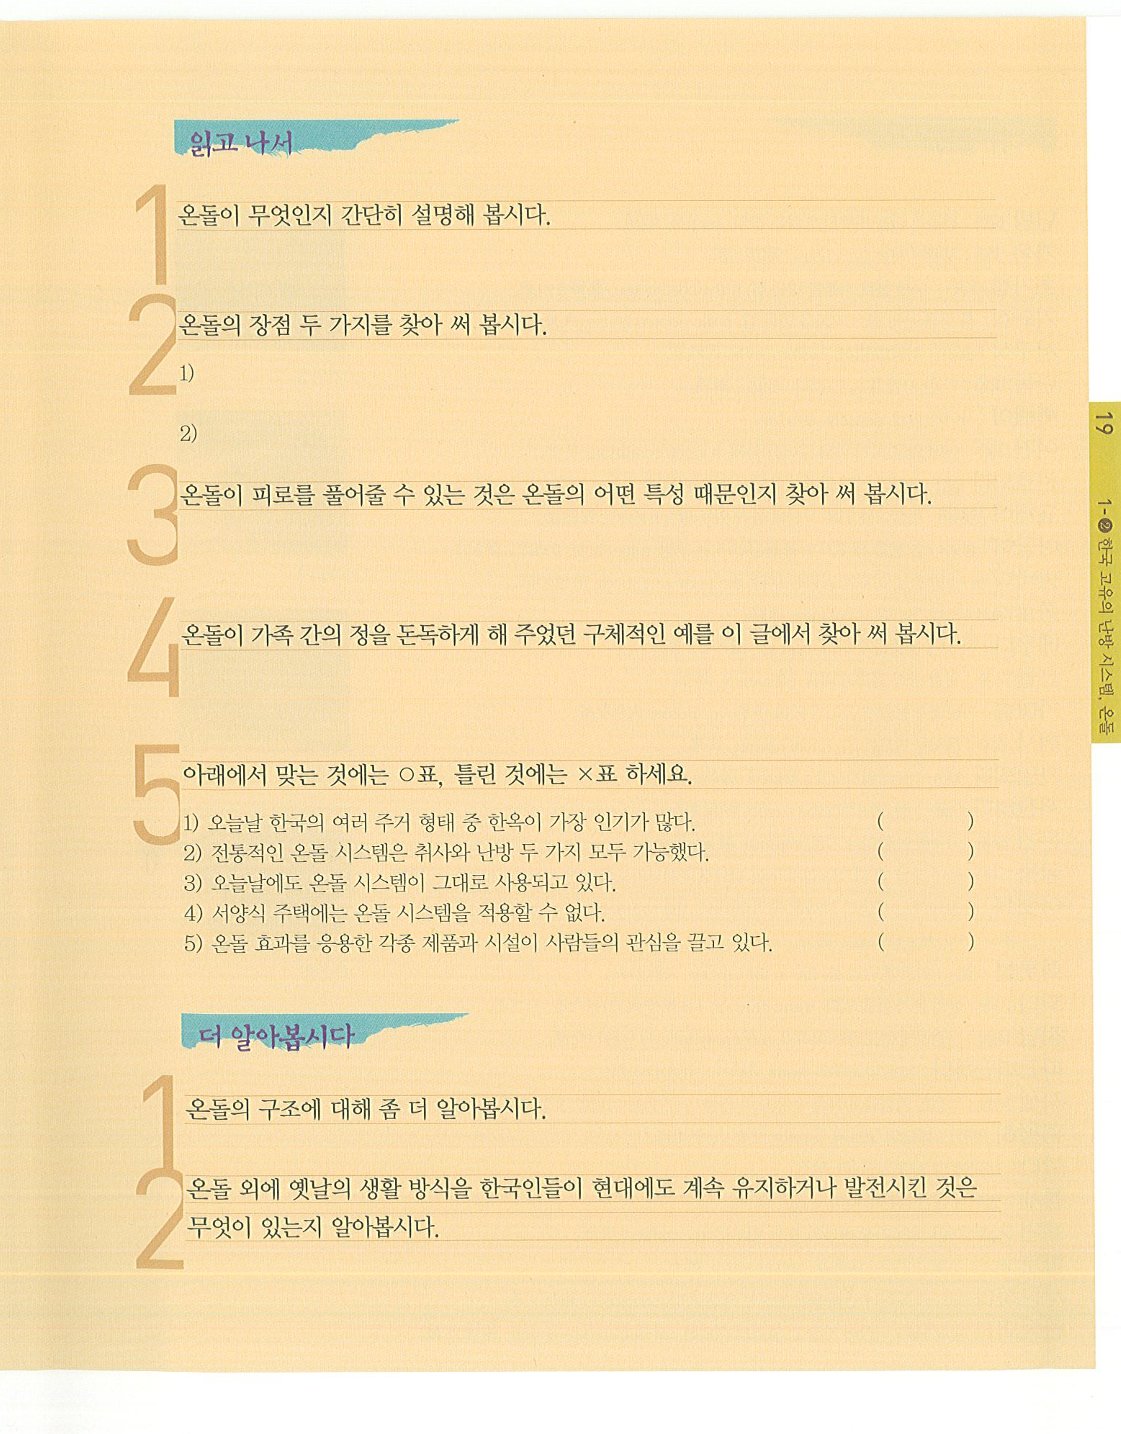 읽고 나서
1
온돌이 무엇인지 간단히 설명해 봅시다.
2
온돌의 장점 두 가지를 찾아 써 봅시다.
1)
2)
3
온돌이 피로를 풀어줄 수 있는 것은 온돌의 어떤 특성 때문인지 찾아 써 봅시다.
4
온돌이 가족 간의 정을 돈독하게 해 주었던 구체적인 예를 이 글에서 찾아 써 봅시다.
5
아래에서 맞는 것에는 ○표, 틀린 것에는 ×표 하세요.
1) 오늘날 한국의 여러 주거 형태 중 한옥이 가장 인기가 많다. ( )
2) 전통적인 온돌 시스템은 취사와 난방 두 가지 모두 가능했다. ( )
3) 오늘날에도 온돌 시스템이 그대로 사용되고 있다. ( )
4) 서양식 주택에는 온돌 시스템을 적용할 수 없다. ( )
5) 온돌 효과를 응용한 각종 제품과 시설이 사람들의 관심을 끌고 있다. ( )
더 알아봅시다
1
온돌의 구조에 대해 좀 더 알아봅시다.
2
온돌 외에 옛날의 생활 방식을 한국인들이 현대에도 계속 유지하거나 발전시킨 것은
무엇이 있는지 알아봅시다.
19
1-❷ 한국 고유의 난방 시스템, 온돌